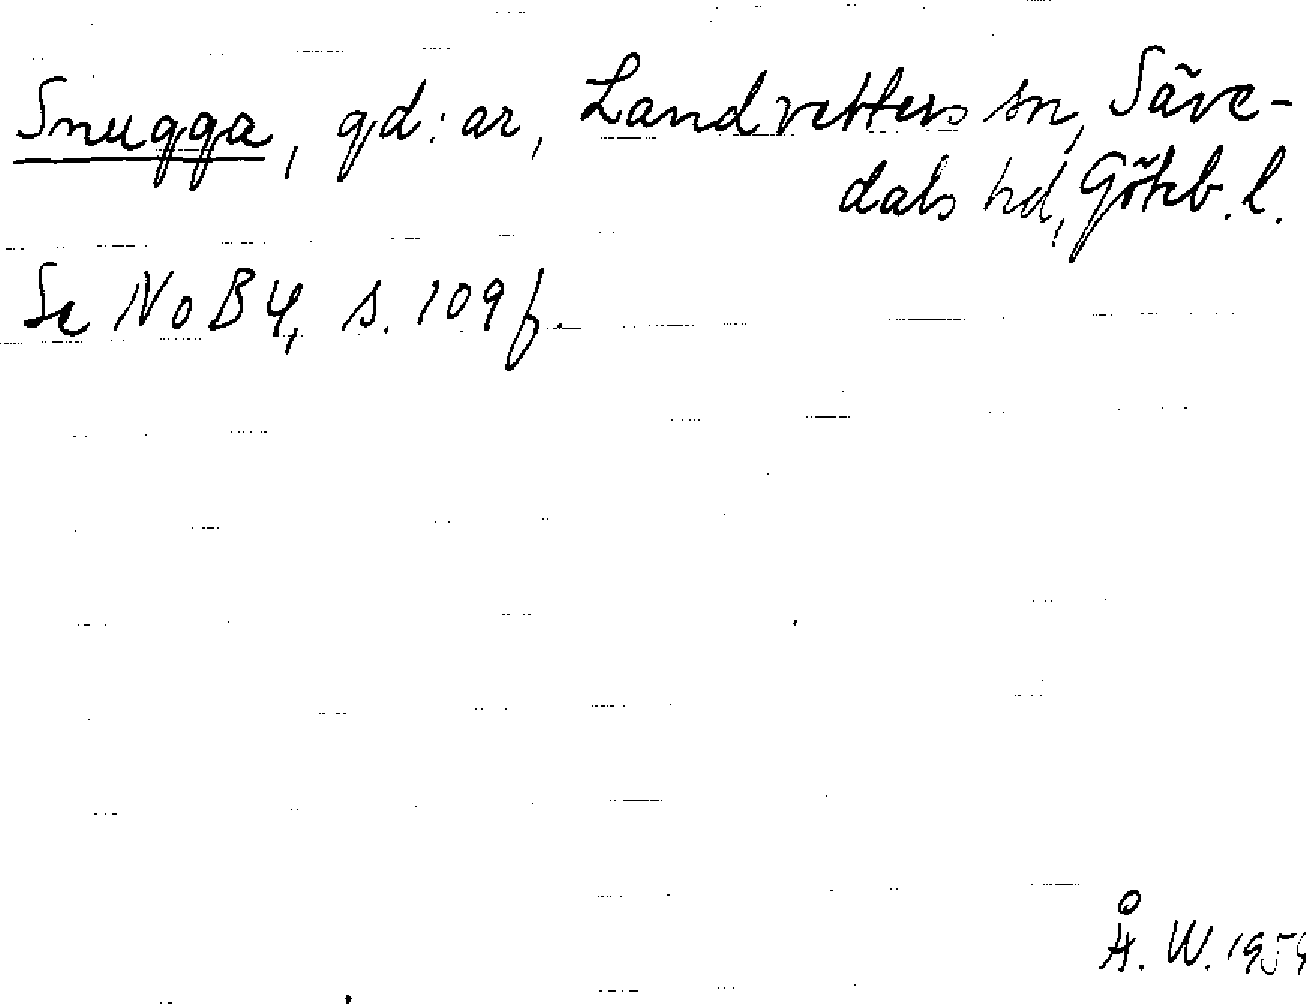 Snugga, gd:ar, Landvetters sn, Säve-
dals hd, Göteb. l.
Se NoB 4, s. 109 f.
Å. W. 195